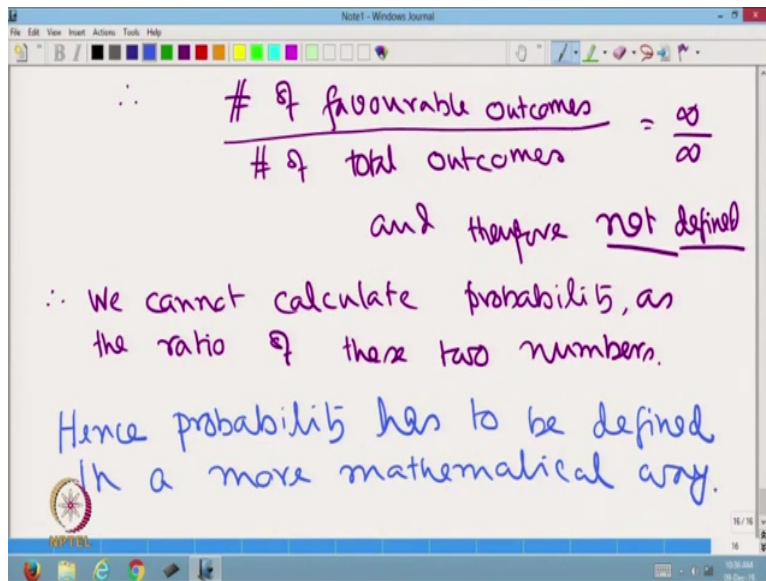 Note1 - Windows Journal
File Edit View Insert Actions Tools Help
B I
∴ # of favourable outcomes = ∞
# of total outcomes ∞
and therefore not defined
∴ We cannot calculate probability, as
the ratio of these two numbers.
Hence probability has to be defined
in a more mathematical way.
NPTEL
16/16
16
10:36 AM
06-Dec-16